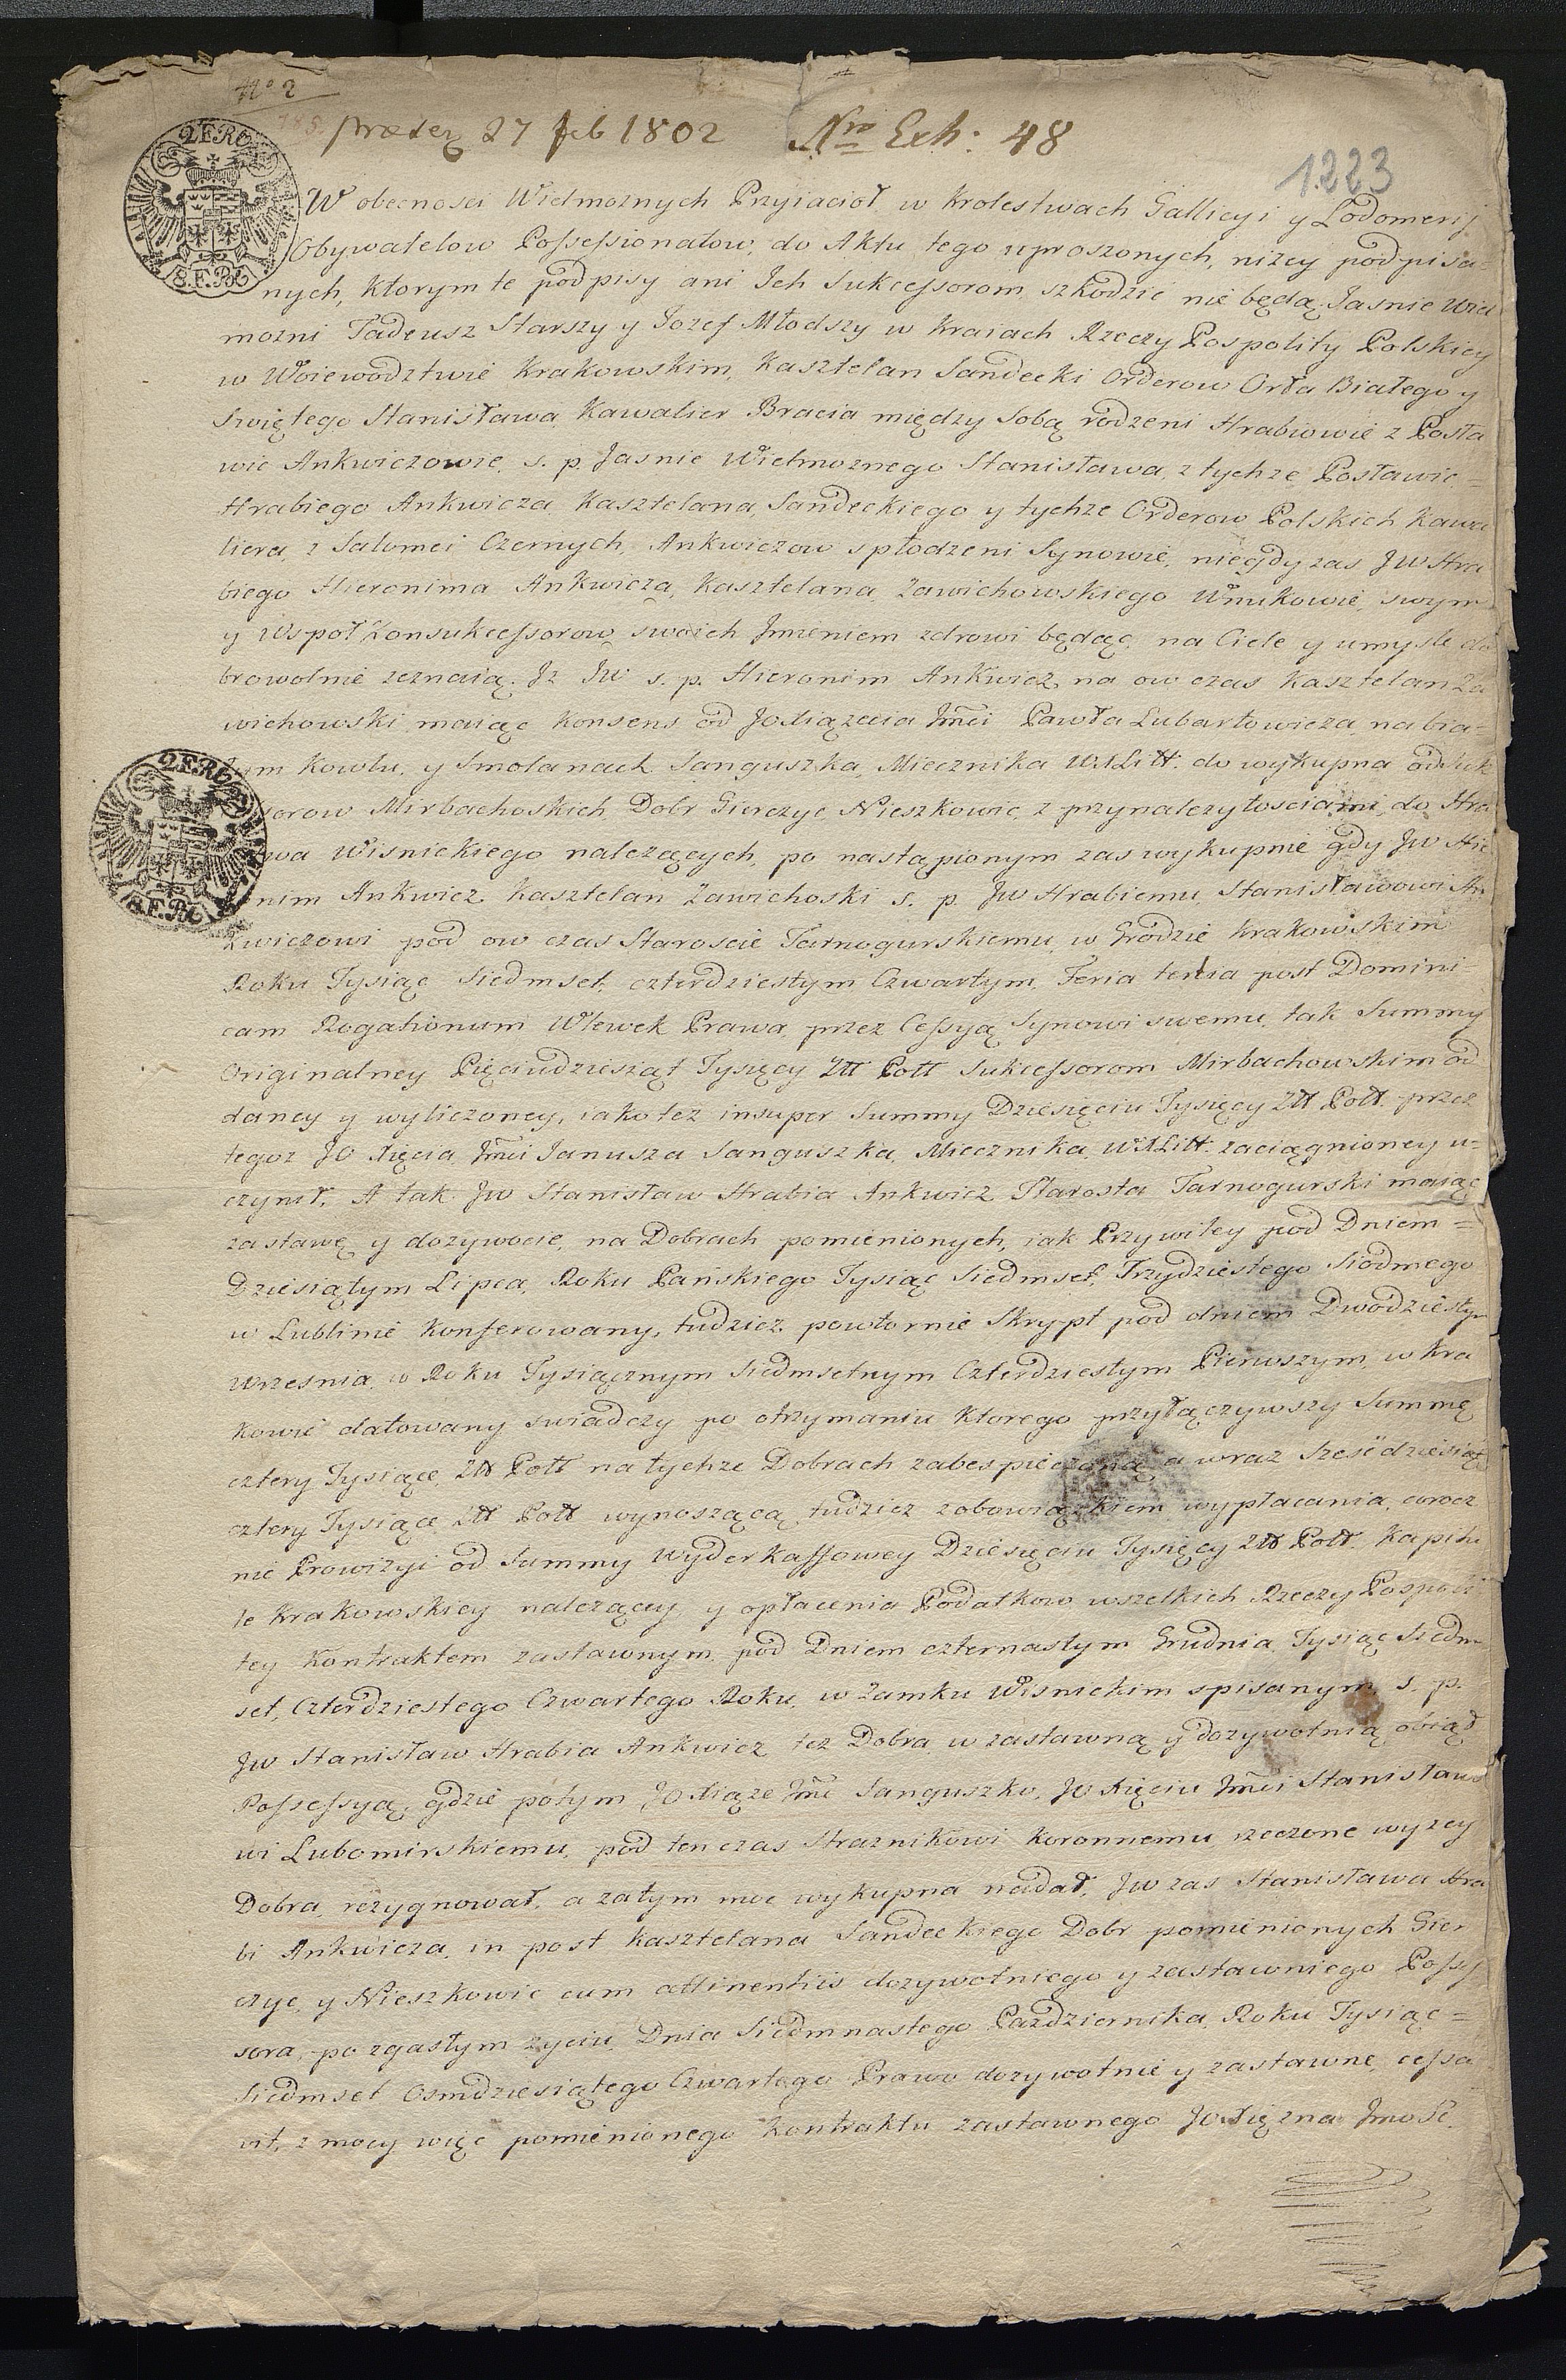 No 2
præseą 27 feb 1802 Nro Exh: 48
1223
2 F.RC
8.F.RC
W obecnosci Wielmoznych Przyiacioł w Krolestwach Gallicyi y Lodomerij
Obywatelow Possessionatow, do Aktu tego uproszonych, nizey podpisa=
nych, Ktorym te podpisy ani Ich Sukcessorom szkodzić nie będą. Jasnie Wiel
mozni Tadeusz Starszy y Jozef Młodszy w Kraiach Rzeczy Pospolity Polskiey
w Woiewodztwie Krakowskim, Kasztelan Sandecki Orderow Orła Białego y
Swiętego Stanisława Kawalier Bracia między Sobą rodzeni Hrabiowie z Posta
wic Ankwiczowie, s. p. Jasnie Wielmoznego Stanisława, z tychze Postawic=
Hrabiego Ankwicza Kasztelana Sandeckiego y tychze Orderow Polskich Kawa
liera z Salomei Czernych, Ankwiczow spłodzeni Synowie, niegdy zas JW Hra
biego Hieronima Ankwicza, Kasztelana Zawichowskiego Wnukowie, swym
y Wspoł Konsukcessorow swoich Imieniem zdrowi będąc, na Ciele y umysle do
browolnie zeznaią. Iz JW s. p. Hieronim Ankwicz na ow czas Kasztelan Za
wichowski maiąc Konsens od JO Xiązecia Jmci Pawła Lubartowicza na bia=
łym Kowlu, y Smolanach Sanguszka, Miecznika WXLitt. do wykupna od Suk
sorow Mirbachoskich Dobr Gierczyc Nieszkowic, z przynalezytosciami, do Hra
wa Wisnickiego nalezących, po nastąpionym zas wykupnie gdy JW Hie
nim Ankwicz Kasztelan Zawichoski s. p. JW Hrabiemu Stanisławowi An
kwiczowi pod ow czas Staroscie Tarnogurskiemu w Grodzie Krakowskim
Roku Tysiąc Siedmset, czterdziestym Czwartym, Feria tertia post Domini=
cam Rogationum Wlewek Prawa, przez Cessyą Synowi swemu, tak Summy
Originalney Pięciudziesiąt Tysięcy Złł Poll Sukcessorom Mirbachowskim od
daney y wyliczoney, iako tez insuper Summy Dziesięciu Tysięcy Złł Poll. przez
tegoz JO Xięcia Jmci Janusza Sanguszka, Miecznika WXLitt. zaciągnioney u=
czynił, A tak JW Stanisław Hrabia Ankwicz Starosta Tarnogurski maiąc
zastawę y dozywocie, na Dobrach pomienionych, iak Przywiley pod Dniem=
Dziesiątym Lipca, Roku Pańskiego Tysiąc Siedmset, Trzydziestego Siodmego
w Lublinie Konferowany, tudziez powtornie Skrypt pod dniem Dwodziestym
Wrzesnia, w Roku Tysiącznym Siedmsetnym Czterdziestym Pierwszym w Kra
kowie datowany swiadczy po otrzymaniu Ktorego przyłączywszy Summę
cztery Tysiące Złł Poll na tychze Dobrach zabespieczoną, a wraz Szesćdziesiąt
cztery Tysiące Złł Poll wynoszącą, tudziez zobowiązkiem wypłacania, corocz
nie Prowizyi od Summy Wyderkassowey Dziesięciu Tysięcy Złł Poll. Kapitu
le Krakowskiey nalezącey y opłacenia Podatkow wszelkich Rzeczy Pospoli
tey Kontraktem zastawnym, pod Dniem czternastym Grudnia Tysiąc Siedm
set, Czterdziestego Czwartego Roku, w Zamku Wisnickim spisanym, s. p.
JW Stanisław Hrabia Ankwicz tez Dobra w zastawną y dozywotnią obiął
Possessyą, gdzie potym JO Xiąze Jmc Sanguszko, JO Xięciu Jmci Stanisławo
wi Lubomirskiemu, pod ten czas Straznikowi Koronnemu rzeczone wyzey
Dobra, rezygnował, a zatym moc wykupna nadał, JW zas Stanisława Hra
bi Ankwicza, in post Kasztelana Sandeckiego Dobr pomienionych Gier
czyc, y Nieszkowic cum attinentiis dozywotniego y zastawniego Posses
sora, po zgasłym zyciu, Dnia Siedmnastego Pazdziernika, Roku Tysiąc=
Siedmset Osmdziesiątego Czwartego Prawo dozywotnie y zastawne cessa
vit, z mocy więc pomienionego Kontraktu zastawnego JO Xięzna Jmość